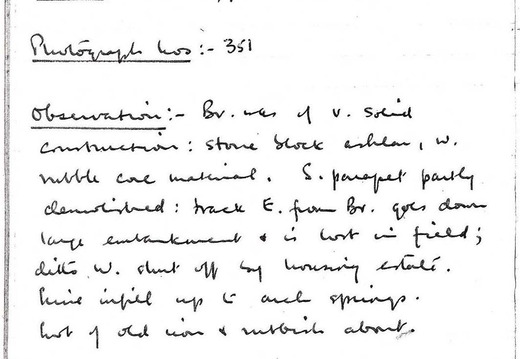 Photograph nos :- 351
Observation :- Br. was of v. solid
construction : stone block ashlar, w.
rubble core material. S. parapet partly
demolished : track E. from Br. goes down
large embankment & is lost in field ;
ditto W. shut off by housing estate.
infill up to arch springs.
Lot of old iron & rubbish about.